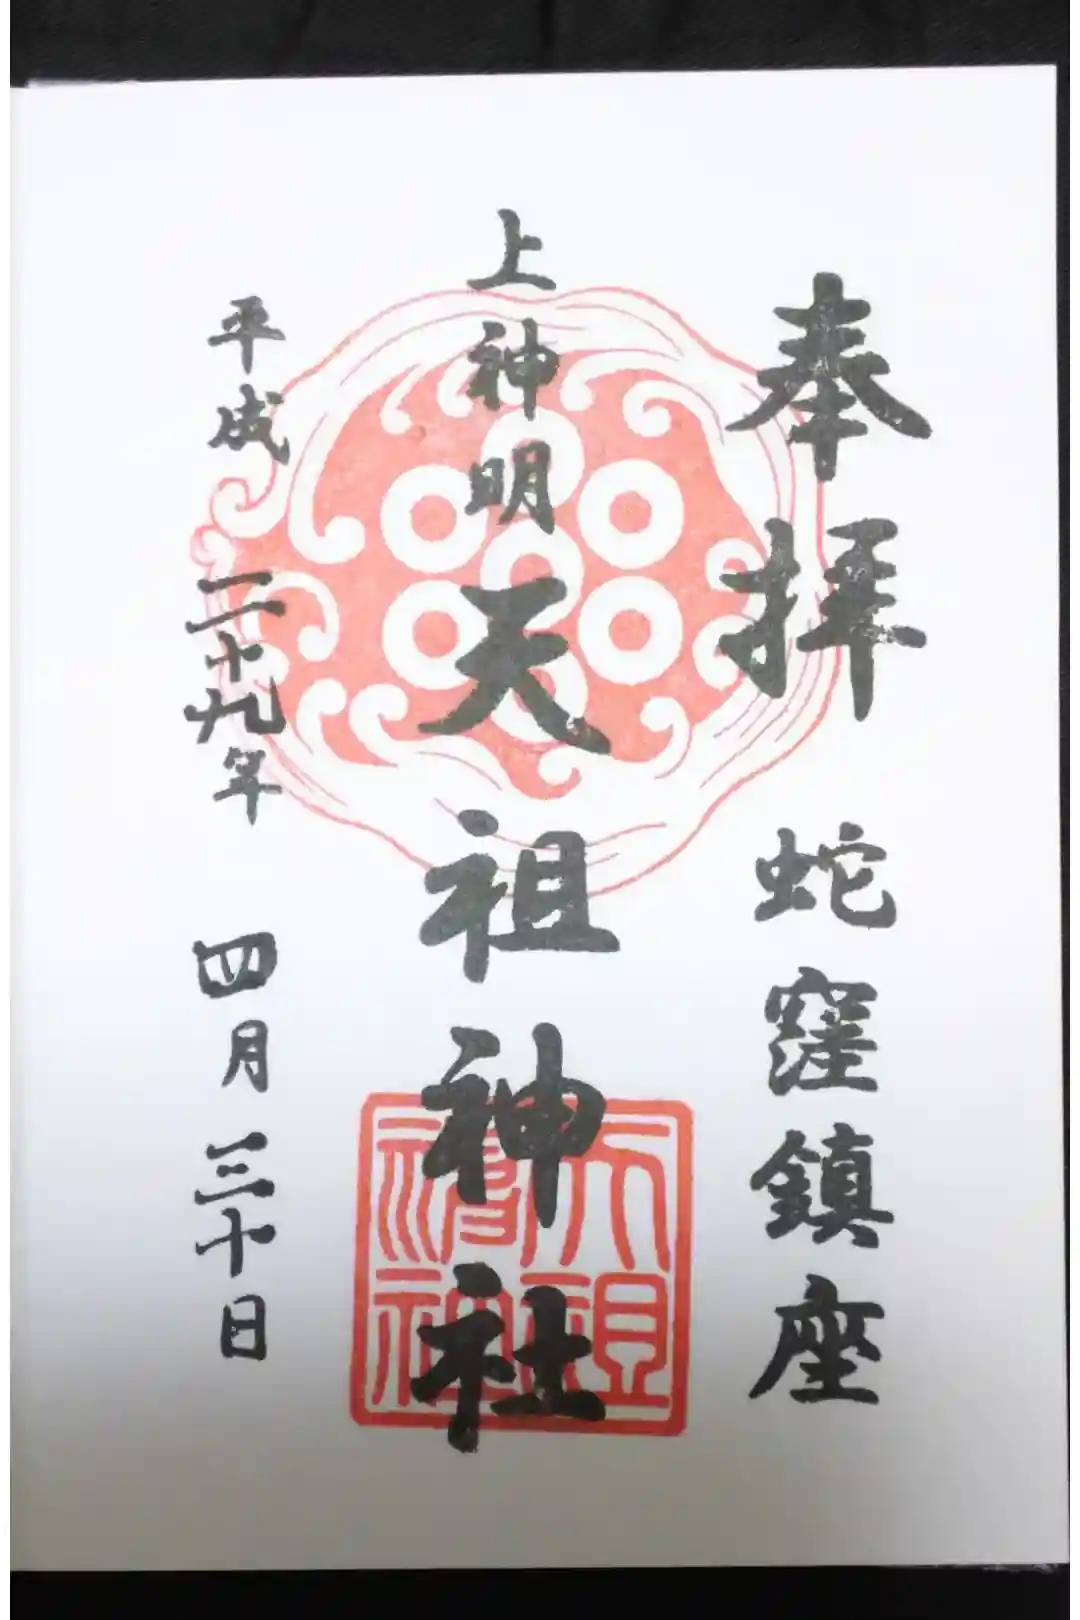 奉拝 蛇窪鎮座
上神明天祖神社
平成二十九年 四月三十日